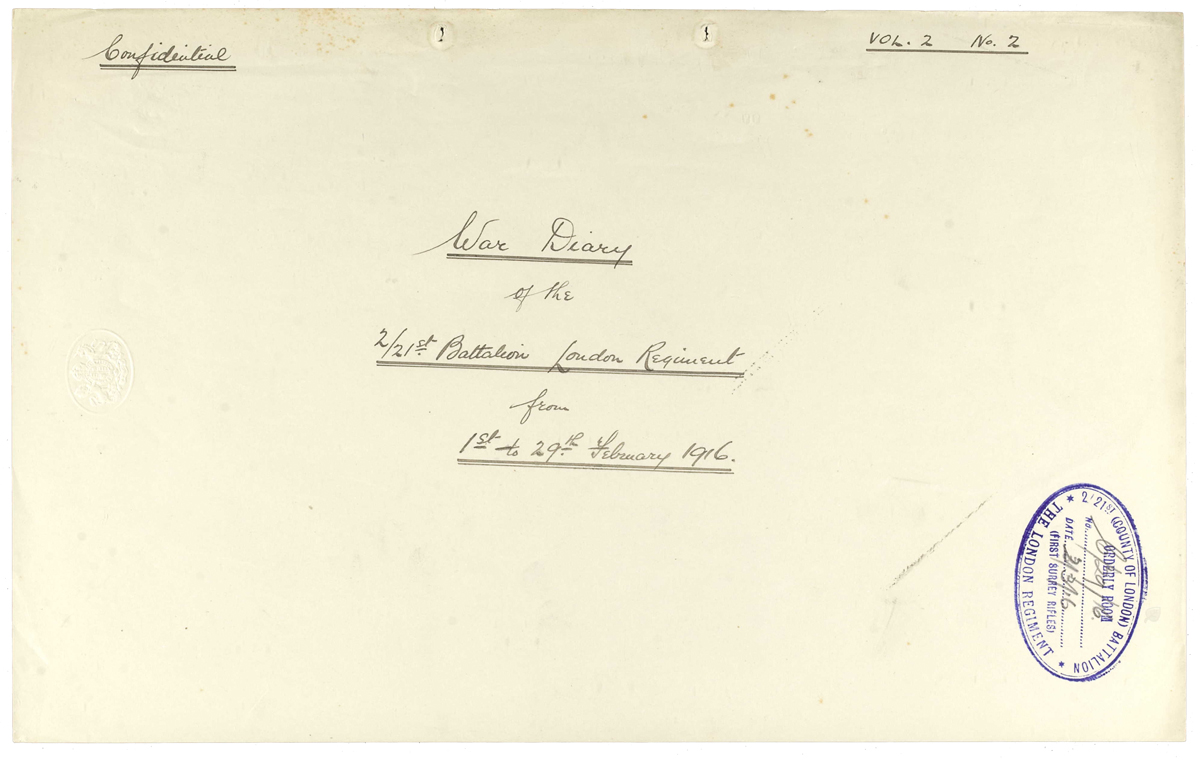 Confidential
VOL. 2 No. 2
War Diary
of the
2/21st Battalion London Regiment
from
1st to 29th February 1916.
2/21ST (COUNTY OF LONDON) BATTALION
ORDERLY ROOM
No.
DATE. 2/3/16
(FIRST SURREY RIFLES)
★ THE LONDON REGIMENT ★